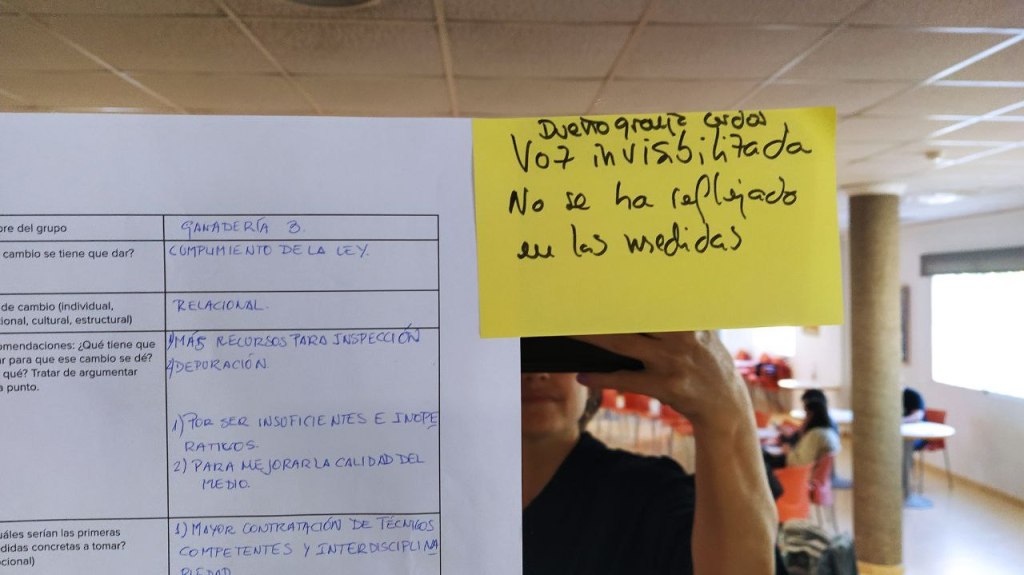 Dueño granja cerdos
Voz invisibilizada
No se ha reflejado
en las medidas
bre del grupo
GANADERÍA 3.
cambio se tiene que dar?
CUMPLIMIENTO DE LA LEY.
de cambio (individual,
cional, cultural, estructural)
RELACIONAL.
omendaciones: ¿Qué tiene que
ar para que ese cambio se dé?
qué? Tratar de argumentar
a punto.
1) MÁS RECURSOS PARA INSPECCIÓN
2) DEPURACIÓN.
1) POR SER INSUFICIENTES E INOPE
RATIVOS.
2) PARA MEJORAR LA CALIDAD DEL
MEDIO.
uáles serían las primeras
didas concretas a tomar?
cional)
1) MAYOR CONTRATACIÓN DE TÉCNICOS
COMPETENTES Y INTERDISCIPLINA
RIEDAD